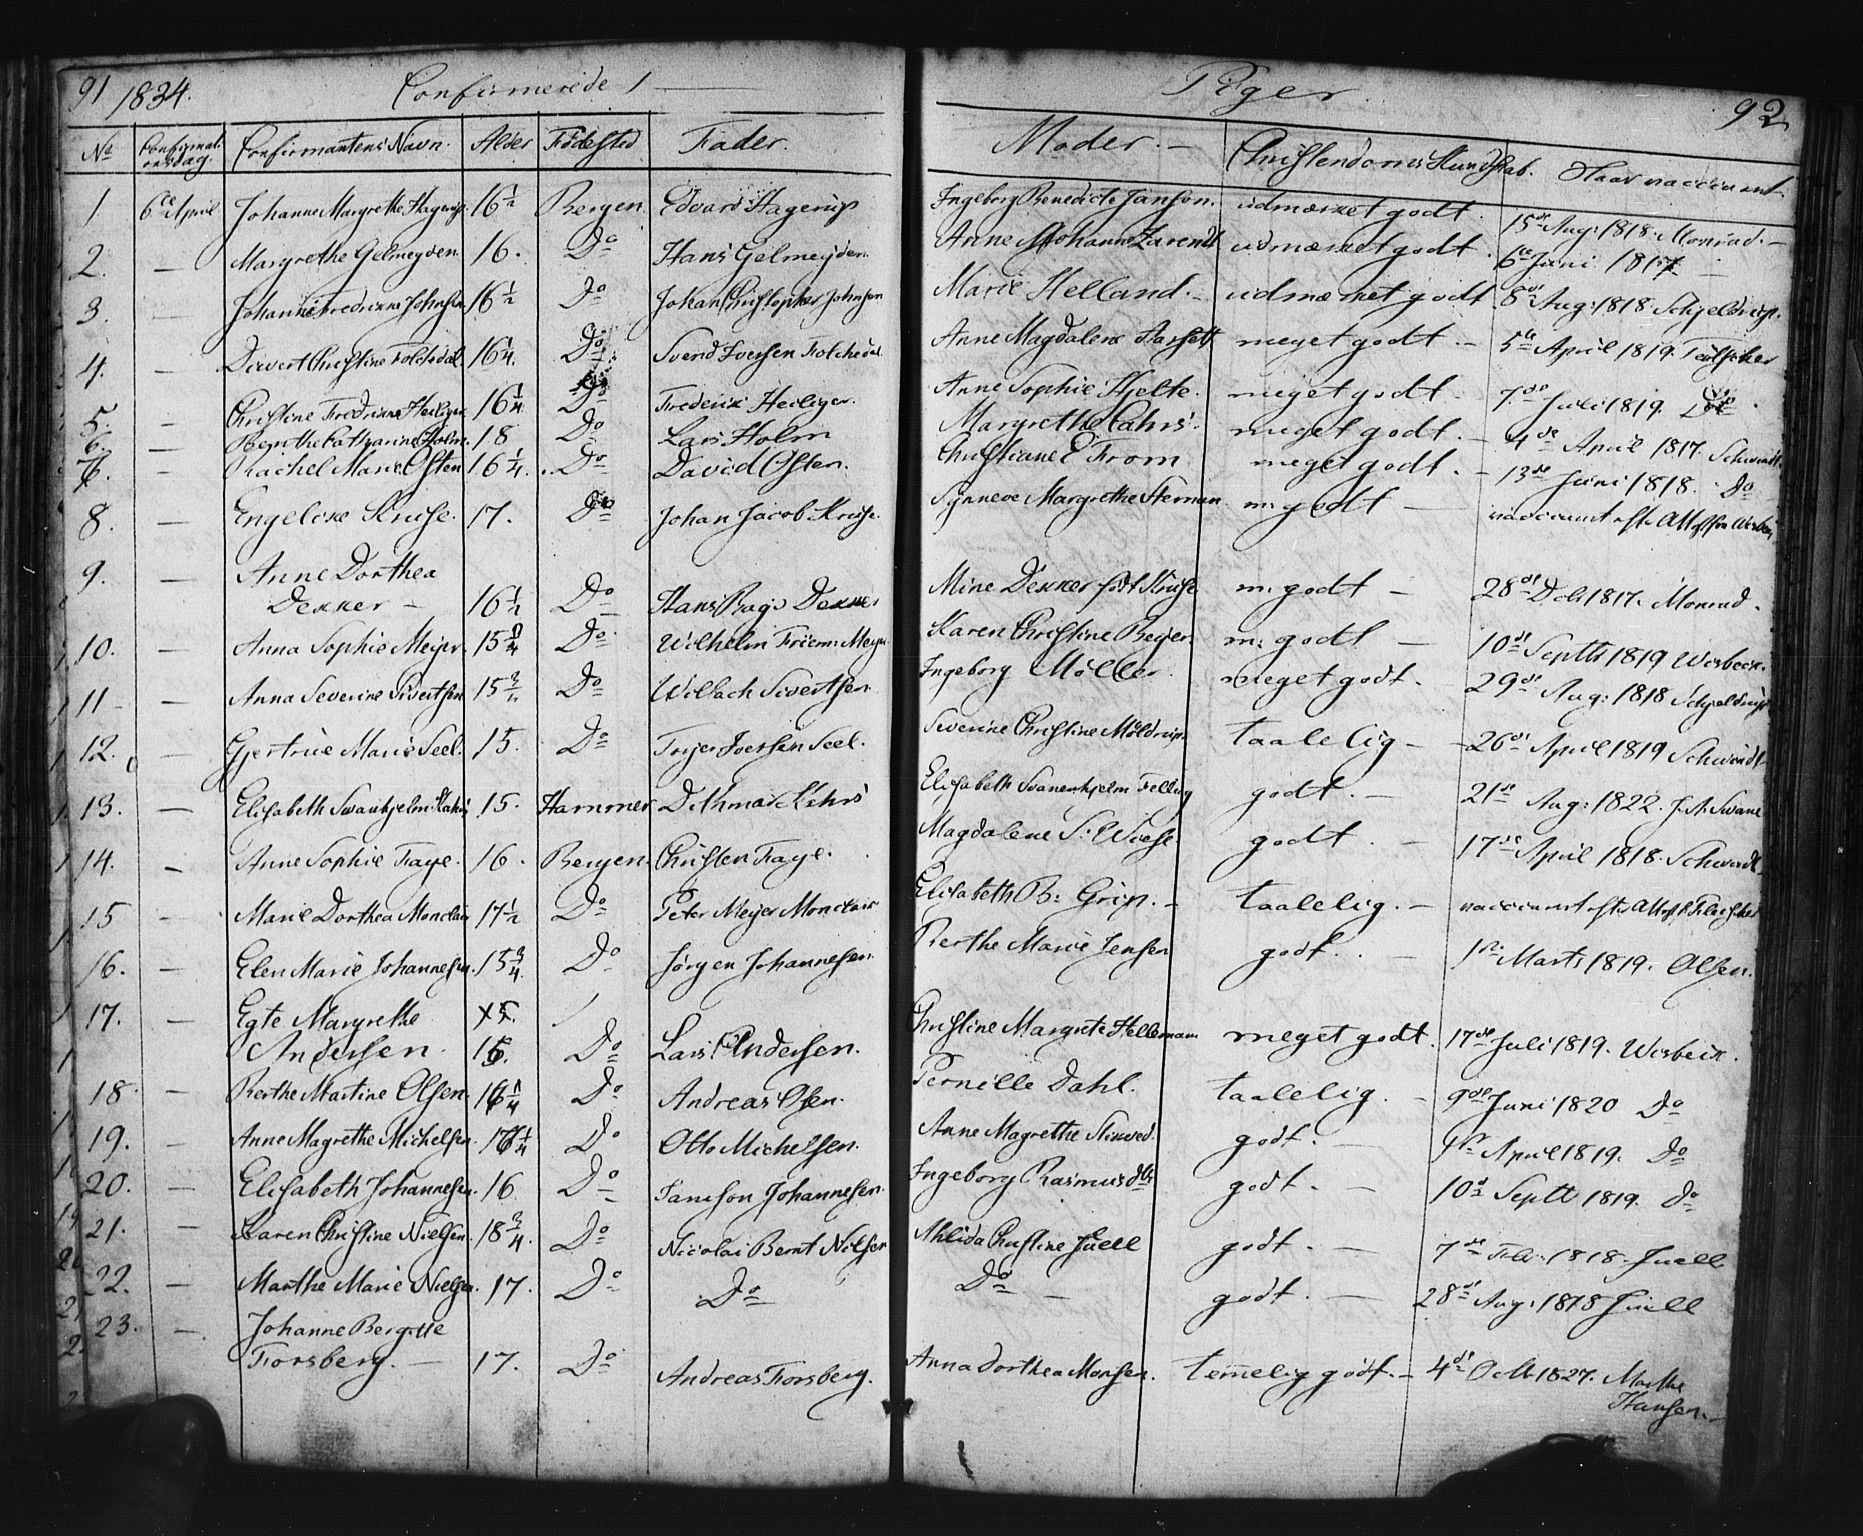 91 1834. Confirmerede Piger 92
No Confirmationsdag. Confirmantens Navn. Alder Fødested Fader. Moder. Christendoms Kundskab. Naar vaccineret
1. 6te April Johanne Margrethe Hagerup 16 1/2 Bergen Edvard Hagerup Ingeborg Benedicte Janson. udmærket godt. 15de Aug: 1818. Monrad.
2. — Margrethe Gelmeyden 16. Do Hans Gelmeyden. Anne Johanne udmærket godt. 6te Juni 1817
3. — Johanne Fredrikke Johnsen 16 1/2 Do Johan Christopher Johnsen Marie Helland. udmærket godt. 8de Aug: 1818. Schjeldrup.
4. — Christine Folchedal 16 1/4. Do Svend Iversen Folchedal Anne Magdalene meget godt. — 5te April 1819.
5. — Christine Fredrikke Heiliger 16 1/4 Do Frederik Heiliger. Anne Sophie Hjelte. meget godt. 7de Juli 1819. Do
6. — Birgithe Catharine Holm. 18 Do Lars Holm Margrethe Cahrs. meget godt. — 4de April 1817. Schwindt
— Rachel Marie Osten 16 1/4. Do David Osten. Christiane E From meget godt. — 13de Juni 1818. Do
8. — Engelche Kruse. 17. Do Johan Jacob Kruse. Synneve Margrethe m: godt — vaccineret efter Attest fra
9. — Anne Dorthea
Dekker — 16 1/2 Do Hans Dekker Mine Dekker født Kruse m: godt — 28de 1817. Monrad.
10. — Anna Sophie Meyer. 15 3/4 Do Wilhelm Meyer Karen Christine Beyer. m: godt — 10de Septbr 1819 Wesbeck.
11 — Anna Severine Sivertsen 15 Do Willach Sivertsen. Ingeborg Möller. meget godt. — 29de Aug: 1818 Schjeldrup
12. — Gjertrue Marie Seel. 15. Do Iversen Seel. Severine Christine Möldrup. taalelig — 26de April 1819 Schwindt
13. — Elisabeth Swanhjelm Kahrs 15. Hammer Dithmar Kahrs Elisabeth Svanenhjelm godt. — 21de Aug: 1822.
14. — Anne Sophie Faye. 16. Bergen. Christen Faye. Magdalene S: Wiese. godt. — 17de April 1818. Schwindt
15 — Marie Dorthea Monclair 17 1/2 Do Peter Meyer Monclair Elisabeth B: Grip. — taalelig. — vaccineret efter Attest fra
16. — Elen Marie Johannesen. 15 3/4. Do Jørgen Johannesen. Berthe Marie Jensen godt. — 1ste Marts 1819. Olsen.
17. — Egte Margrethe
Andersen. 16. Do Lars Andersen. Christine Margrete Hellemann meget godt. 17de Juli 1819. Wesbeck.
18. — Berthe Martine Olsen. 16 1/4 Do Andreas Olsen. Pernille Dahl. taalelig. — 9de Juni 1820 Do
19. — Anne Magrethe Michelsen. Do Otto Michelsen. Anne Magrethe godt. — April 1819. Do
20. — Elisabeth Johannesen. 16 Do Samson Johannesen. Ingeborg Rasmusdtr godt. — 10de Septbr 1819. Do
21. — Karen Christine Nielsen. 18 3/4. Do Nicolai Bernt Nilsen Ahlida Christine Juell godt. — 7de Febr: 1818. Juell
22. — Marthe Marie Nielsen. 17. Do Do Do — godt. — 28de Aug: 1818 Juell
23. — Johanne Bergitte
Forsberg. — 17. Do Andreas Forsberg. Anna Dorthea Monsen. temmelig godt. — 4de Octbr 1827. Marthe
Hansen. —